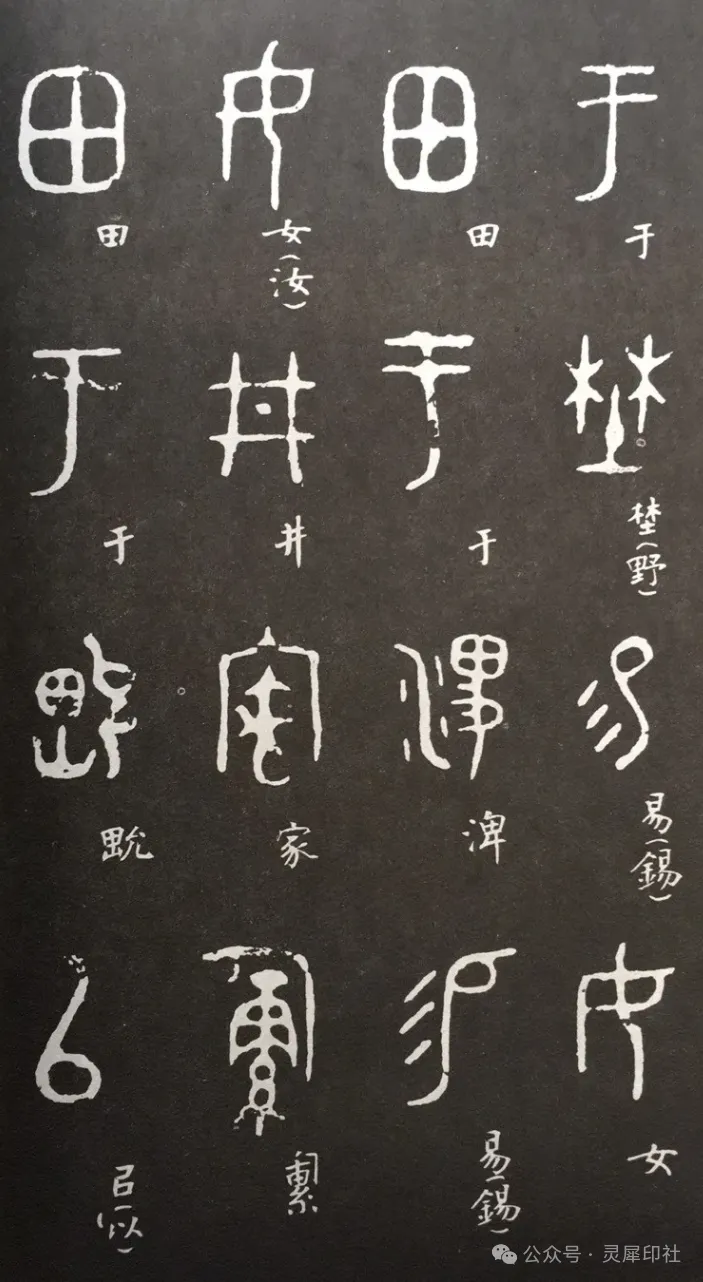 于 埜(野) 易(錫) 女
田 于 渒 易(錫)
女(汝) 井 家
田 于 㠯(以)
公众号 · 灵犀印社